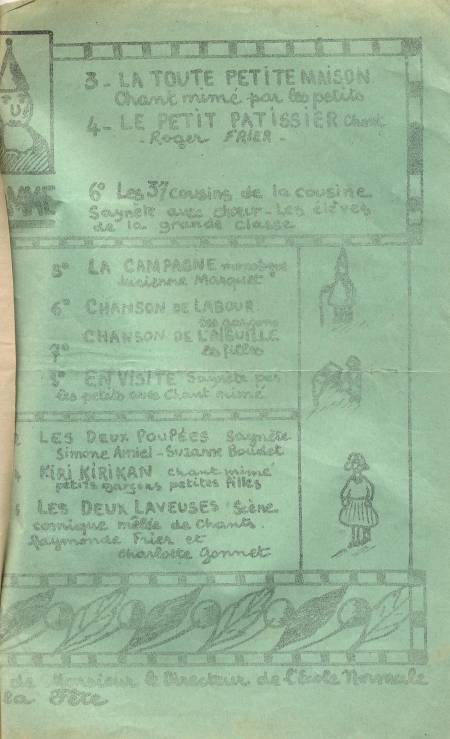 3 - LA TOUTE PETITE MAISON
Chant mimé par les petits
4 - LE PETIT PATISSIER Chant
- Roger FRIER -
MME
6° Les 37 cousins de la cousine
Saynète avec chœur - Les élèves
de la grande classe
5° LA CAMPAGNE monologue
Lucienne Marquet
6° CHANSON DE LABOUR
les garçons
CHANSON DE L'AIGUILLE
7° les filles
8° EN VISITE Saynète par
les petits avec Chant mimé
LES DEUX POUPÉES Saynète
Simone Amiel - Suzanne Boudet
KIRI KIRIKAN chant mimé
petits garçons petites filles
LES DEUX LAVEUSES Scène
comique mêlée de Chants.
Raymonde Frier et
Charlotte Gonnet
de Monsieur le Directeur de l'École Normale
la Fête